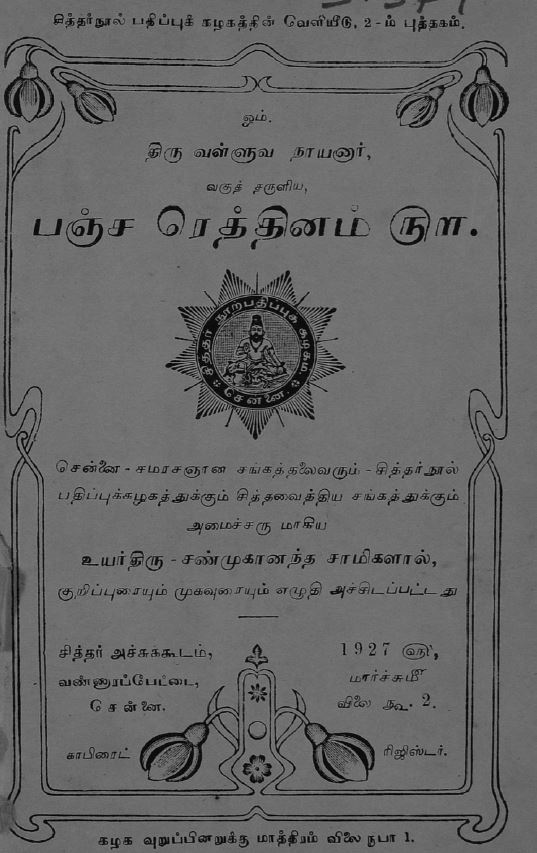 சித்தர்நூல் பதிப்புக் கழகத்தின் வெளியீடு, 2-ம் புத்தகம்.
ஓம்.
திரு வள்ளுவ நாயனார்,
வகுத் தருளிய,
பஞ்ச ரெத்தினம் நூள.
சித்தர் நூற்பதிப்புக் கழகம்.
சென்னை.
சென்னை - சமரசஞான சங்கத்தலைவரும் - சித்தர்நூல்
பதிப்புக்கழகத்துக்கும் சித்தவைத்திய சங்கத்துக்கும்
அமைச்சரு மாகிய
உயர்திரு - சண்முகானந்த சாமிகளால்,
குறிப்புரையும் முகவுரையும் எழுதி அச்சிடப்பட்டது
சித்தர் அச்சுக்கூடம்,
வண்ணாரப்பேட்டை,
சென்னை.
1927 ௵,
மார்ச்சு௴
விலை ரூ. 2.
காபிரைட்
ரிஜிஸ்டர்.
கழக வுறுப்பினறுக்கு மாத்திரம் விலை ரூபா 1.